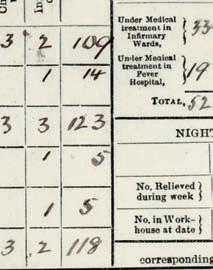 3 2 109
1 14
3 3 123
1 5
1 5
3 2 118
Under Medical
treatment in
Infirmary
Wards,
33
Under Medical
treatment in
Fever
Hospital,
19
TOTAL, 52
NIGHT
No. Relieved
during week
No. in Work-
house at date
corresponding